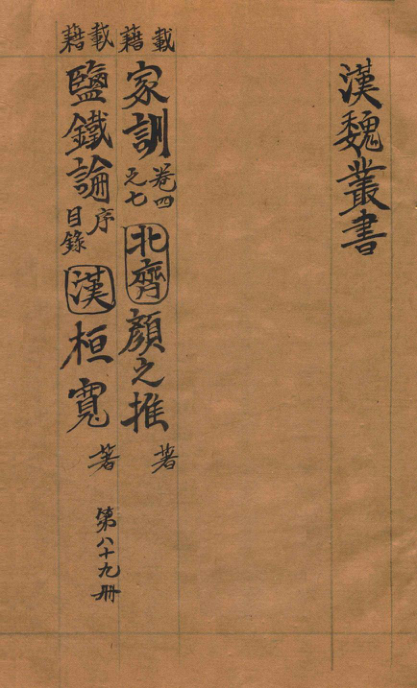 漢魏叢書
載籍
家訓 卷四之七 北齊 顏之推 著
載籍
鹽鐵論 序目錄 漢 桓寬 著
第八十九冊